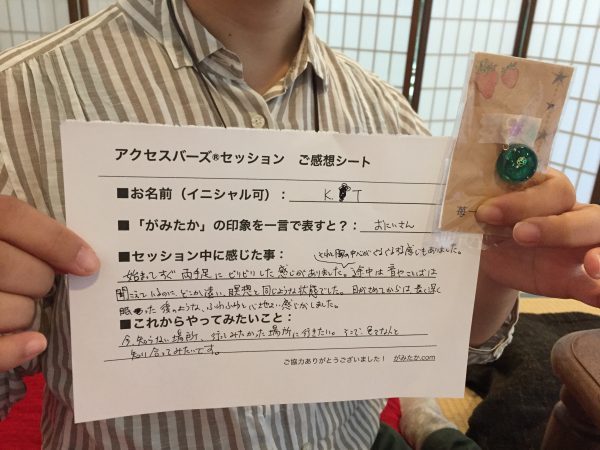 アクセスバーズ®セッション ご感想シート
■お名前（イニシャル可）： K. T
■「がみたか」の印象を一言で表すと？： おにいさん
■セッション中に感じた事：
とくに胸の中心がぐるぐるする感じもありました。
始まってすぐ両手足にビリビリした感じがありました。途中は音やことばは
聞こえているのに、どこか遠い、瞑想と同じような状態でした。目がさめてからは、長く深く
眠った後のような、ふわふわと心地よい感じがしました。
■これからやってみたいこと：
今、知らない場所、行ってみたかった場所に行きたい。そこで、色々な人と
知り合ってみたいです。
ご協力ありがとうございました！ がみたか.com
苺一